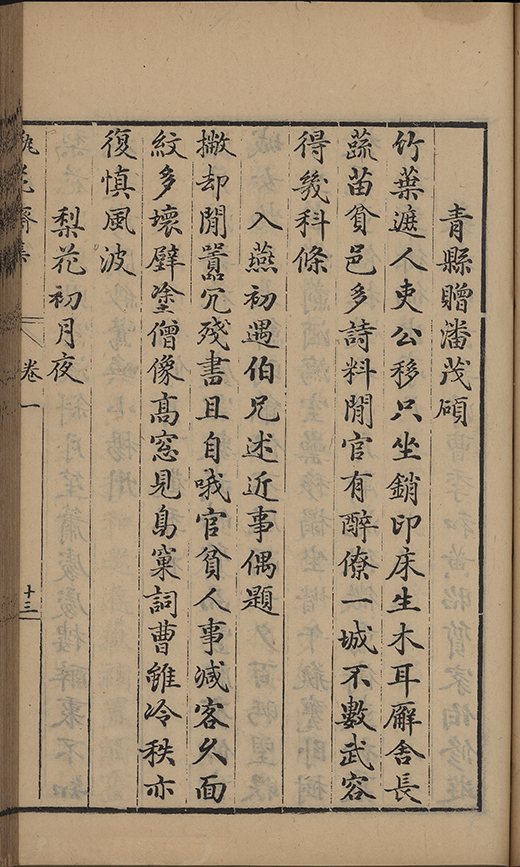 青縣贈潘茂碩
竹葉遮人吏公移只坐銷印床生木耳廨舍長
蔬苗貧邑多詩料閒官有醉僚一城不數武容
得幾科條
入燕初遇伯兄述近事偶題
撇却閒囂冗殘書且自哦官貧人事减客久面
紋多壞壁塗僧像高窓見鳥窠詞曹雖冷秩亦
復慎風波
梨花初月夜
卷一
十三